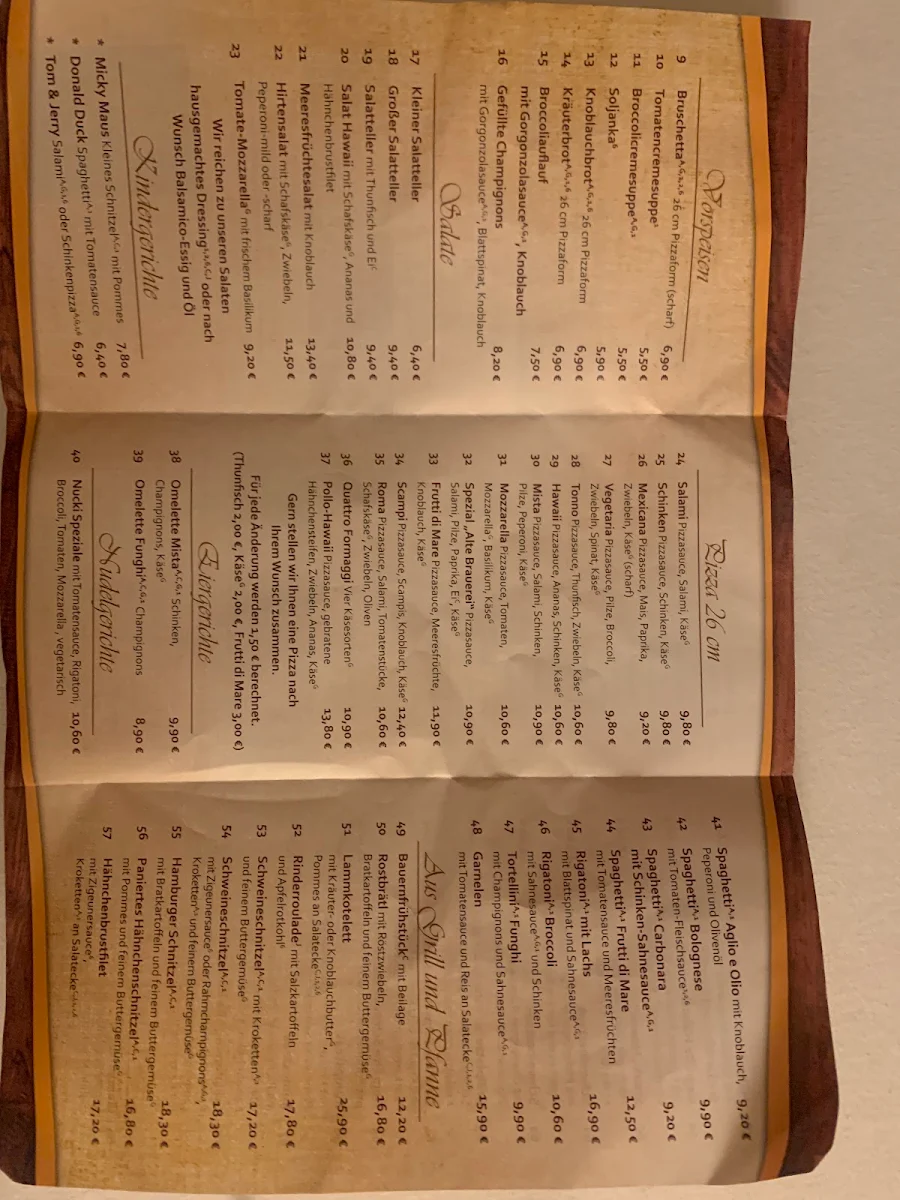 Vorspeisen
9 Bruschetta^A,G,1,2,6 26 cm Pizzaform (scharf) 6,90 €
10 Tomatencremesuppe 5,50 €
11 Broccolicremesuppe^A,G,1 5,50 €
12 Soljanka^6 5,90 €
13 Knoblauchbrot^A,G,1,6 26 cm Pizzaform 6,90 €
14 Kräuterbrot^A,G,1,6 26 cm Pizzaform 6,90 €
15 Broccoliauflauf
mit Gorgonzolasauce^A,G,1, Knoblauch 7,50 €
16 Gefüllte Champignons 8,20 €
mit Gorgonzolasauce^A,G,1, Blattspinat, Knoblauch
Salate
17 Kleiner Salatteller 6,40 €
18 Großer Salatteller 9,40 €
19 Salatteller mit Thunfisch und Ei^C 9,40 €
20 Salat Hawaii mit Schafskäse^G, Ananas und 10,80 €
Hähnchenbrustfilet
21 Meeresfrüchtesalat mit Knoblauch 13,40 €
22 Hirtensalat mit Schafskäse^G, Zwiebeln, 11,50 €
Peperoni-mild oder -scharf
23 Tomate-Mozzarella^G mit frischem Basilikum 9,20 €
Wir reichen zu unseren Salaten
hausgemachtes Dressing oder nach
Wunsch Balsamico-Essig und Öl
Kindergerichte
* Micky Maus Kleines Schnitzel^A,C,1 mit Pommes 7,80 €
* Donald Duck Spaghetti^A,1 mit Tomatensauce 6,40 €
* Tom & Jerry Salami^A,G,1,6 oder Schinkenpizza^A,G,1,6 6,90 €
Pizza 26 cm
24 Salami Pizzasauce, Salami, Käse^G 9,80 €
25 Schinken Pizzasauce, Schinken, Käse^G 9,80 €
26 Mexicana Pizzasauce, Mais, Paprika, 9,20 €
Zwiebeln, Käse^G (scharf)
27 Vegetaria Pizzasauce, Pilze, Broccoli, 9,80 €
Zwiebeln, Spinat, Käse^G
28 Tonno Pizzasauce, Thunfisch, Zwiebeln, Käse^G 10,60 €
29 Hawaii Pizzasauce, Ananas, Schinken, Käse^G 10,60 €
30 Mista Pizzasauce, Salami, Schinken, 10,90 €
Pilze, Peperoni, Käse^G
31 Mozzarella Pizzasauce, Tomaten, 10,60 €
Mozzarella^G, Basilikum, Käse^G
32 Spezial „Alte Brauerei“ Pizzasauce, 10,90 €
Salami, Pilze, Paprika, Ei^C, Käse^G
33 Frutti di Mare Pizzasauce, Meeresfrüchte, 11,90 €
Knoblauch, Käse^G
34 Scampi Pizzasauce, Scampis, Knoblauch, Käse^G 12,40 €
35 Roma Pizzasauce, Salami, Tomatenstücke, 10,60 €
Schafskäse^G, Zwiebeln, Oliven
36 Quattro Formaggi Vier Käsesorten^G 10,90 €
37 Pollo-Hawaii Pizzasauce, gebratene 13,80 €
Hähnchensteifen, Zwiebeln, Ananas, Käse^G
Gern stellen wir Ihnen eine Pizza nach
Ihrem Wunsch zusammen.
Für jede Änderung werden 1,50 € berechnet.
(Thunfisch 2,00 €, Käse^G 2,00 €, Frutti di Mare 3,00 €)
Eiergerichte
38 Omelette Mista^A,C,G,1 Schinken, 9,90 €
Champignons, Käse^G
39 Omelette Funghi^A,C,G,1 Champignons 8,90 €
Nudelgerichte
40 Nucki Speziale mit Tomatensauce, Rigatoni, 10,60 €
Broccoli, Tomaten, Mozzarella, vegetarisch
41 Spaghetti^A,1 Aglio e Olio mit Knoblauch, 9,20 €
Peperoni und Olivenöl
42 Spaghetti^A,1 Bolognese 9,90 €
mit Tomaten-Fleischsauce
43 Spaghetti^A,1 Carbonara 9,20 €
mit Schinken-Sahnesauce^A,G,1
44 Spaghetti^A,1 Frutti di Mare 12,50 €
mit Tomatensauce und Meeresfrüchten
45 Rigatoni^A,1 mit Lachs 16,90 €
mit Blattspinat und Sahnesauce^A,G,1
46 Rigatoni^A,1 Broccoli 10,60 €
mit Sahnesauce^A,G,1 und Schinken
47 Tortellini^A,1 Funghi 9,90 €
mit Champignons und Sahnesauce^A,G,1
48 Garnelen 15,90 €
mit Tomatensauce und Reis an Salatecke
Aus Grill und Pfanne
49 Bauernfrühstück^C mit Beilage 12,20 €
50 Rostbrätl mit Rostzwiebeln, 16,80 €
Bratkartoffeln und feinem Buttergemüse^G
51 Lammkotelett 25,90 €
mit Kräuter- oder Knoblauchbutter,
Pommes an Salatecke
52 Rinderroulade mit Salzkartoffeln 17,80 €
und Apfelrotkohl^6
53 Schweineschnitzel^A,C,1 mit Kroketten^A,1 17,20 €
und feinem Buttergemüse^G
54 Schweineschnitzel^A,C,1 18,30 €
mit Zigeunersauce oder Rahmchampignons^A,G,1,
Kroketten^A,1 und feinem Buttergemüse^G
55 Hamburger Schnitzel^A,C,1 18,30 €
mit Bratkartoffeln und feinem Buttergemüse^G
56 Paniertes Hähnchenschnitzel^A,C,1 16,80 €
mit Pommes und feinem Buttergemüse^G
57 Hähnchenbrustfilet 17,20 €
mit Zigeunersauce,
Kroketten^A,1 an Salatecke